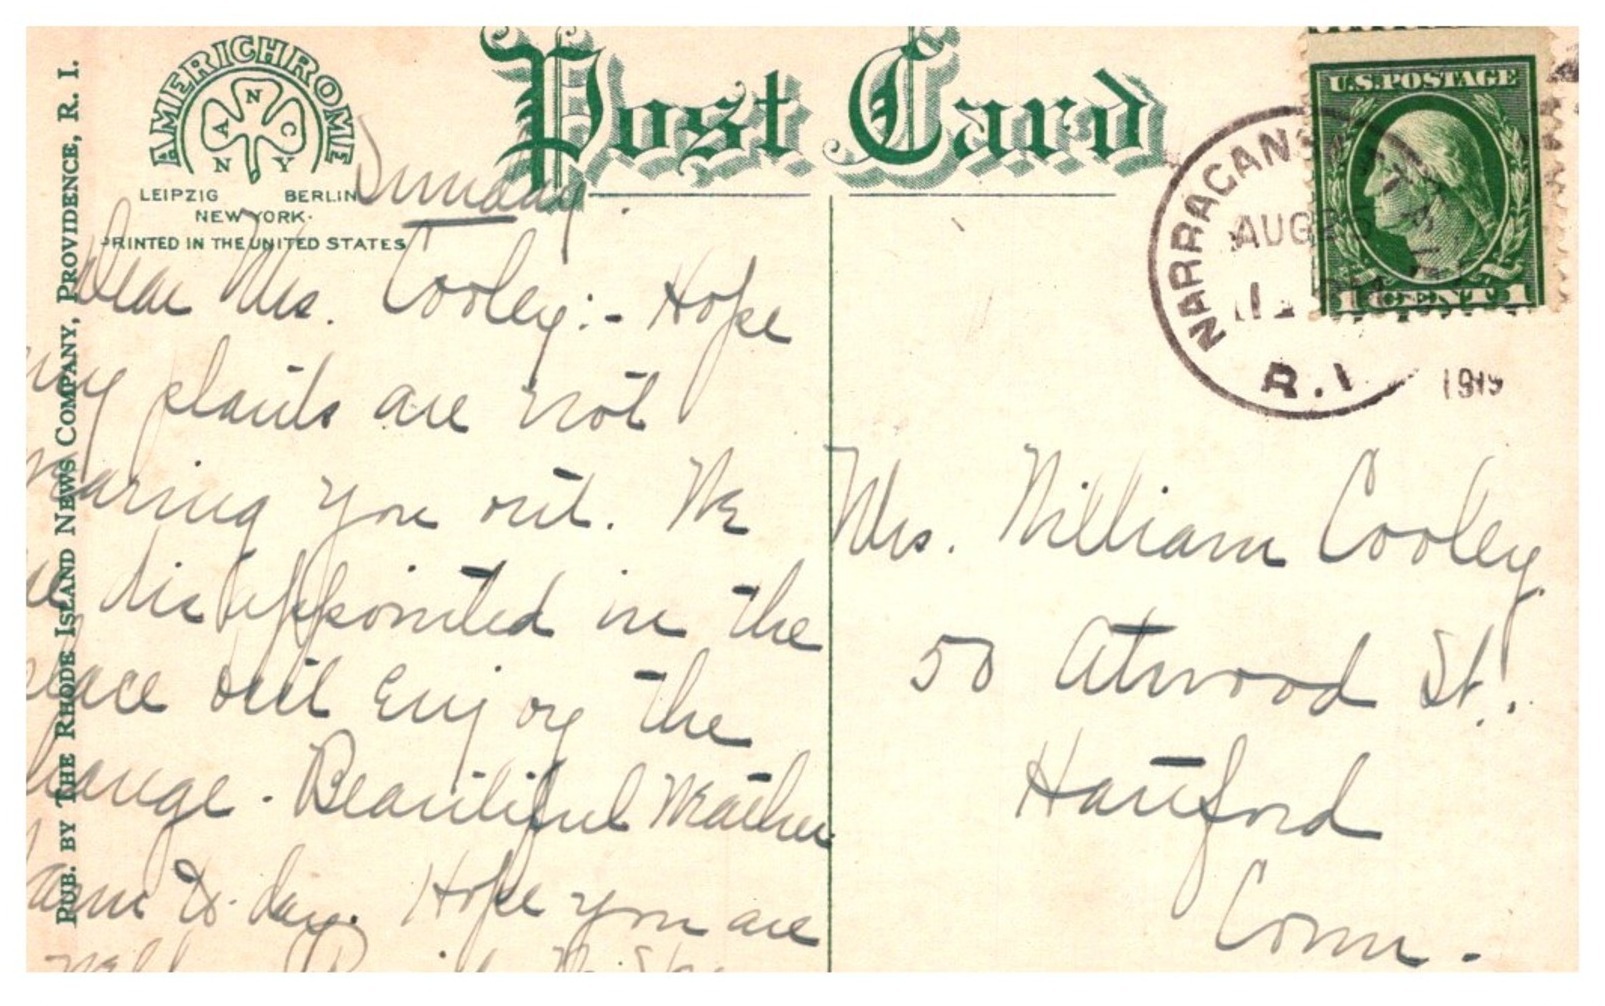 PUB. BY THE RHODE ISLAND NEWS COMPANY, PROVIDENCE, R. I.
AMERICHROME
N
A C
N Y
LEIPZIG BERLIN
NEW YORK.
PRINTED IN THE UNITED STATES
Post Card
U.S. POSTAGE
1 CENT 1
NARRAGANSETT
AUG 25
R.I.
1919
Sunday.
Dear Mrs. Cooley:- Hope
my plants are not
wearing you out. We
are disappointed in the
place but enjoy the
change. Beautiful weather
warm to-day. Hope you are
well.
Mrs. William Cooley
50 Atwood St.
Hartford
Conn.